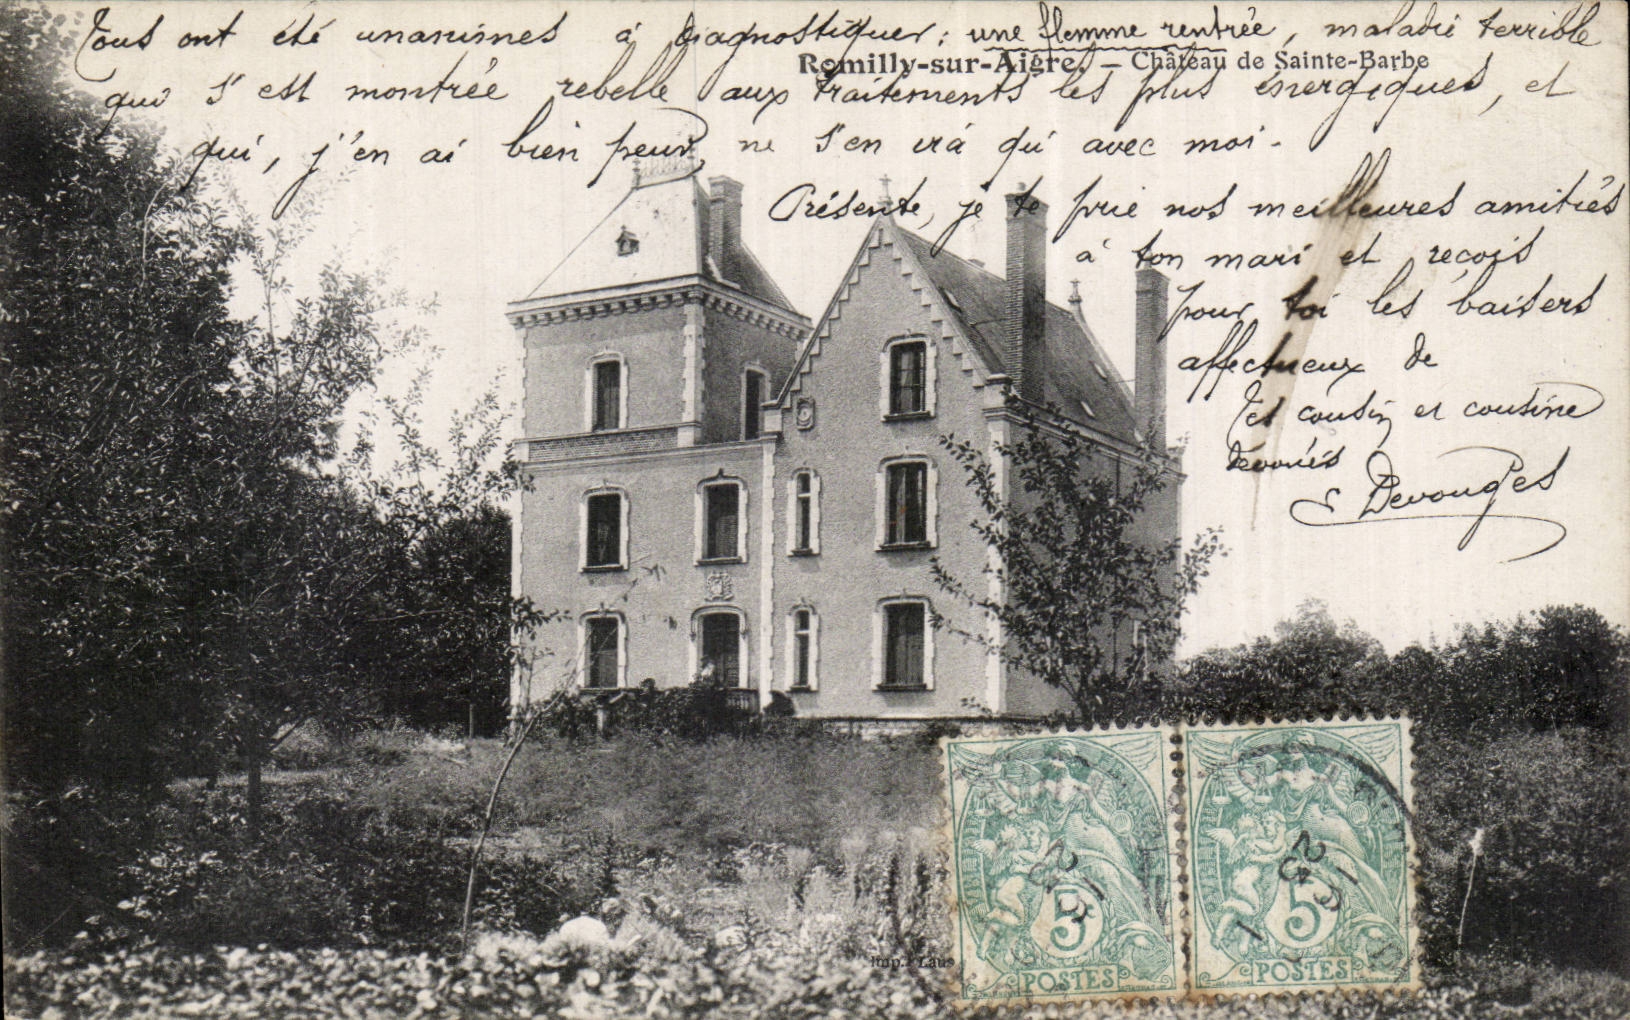 Tous ont été unanimes à diagnostiquer : une flemme rentrée, maladie terrible
Romilly-sur-Aigre. — Château de Sainte-Barbe
qui s'est montrée rebelle aux traitements les plus énergiques, et
qui, j'en ai bien peur, ne s'en ira qu'avec moi.
Présente, je te prie nos meilleures amitiés
à ton mari et reçois
pour toi les baisers
affectueux de
tes cousin et cousine
dévoués
E Devouges
Imp. Laus
5 POSTES
5 POSTES